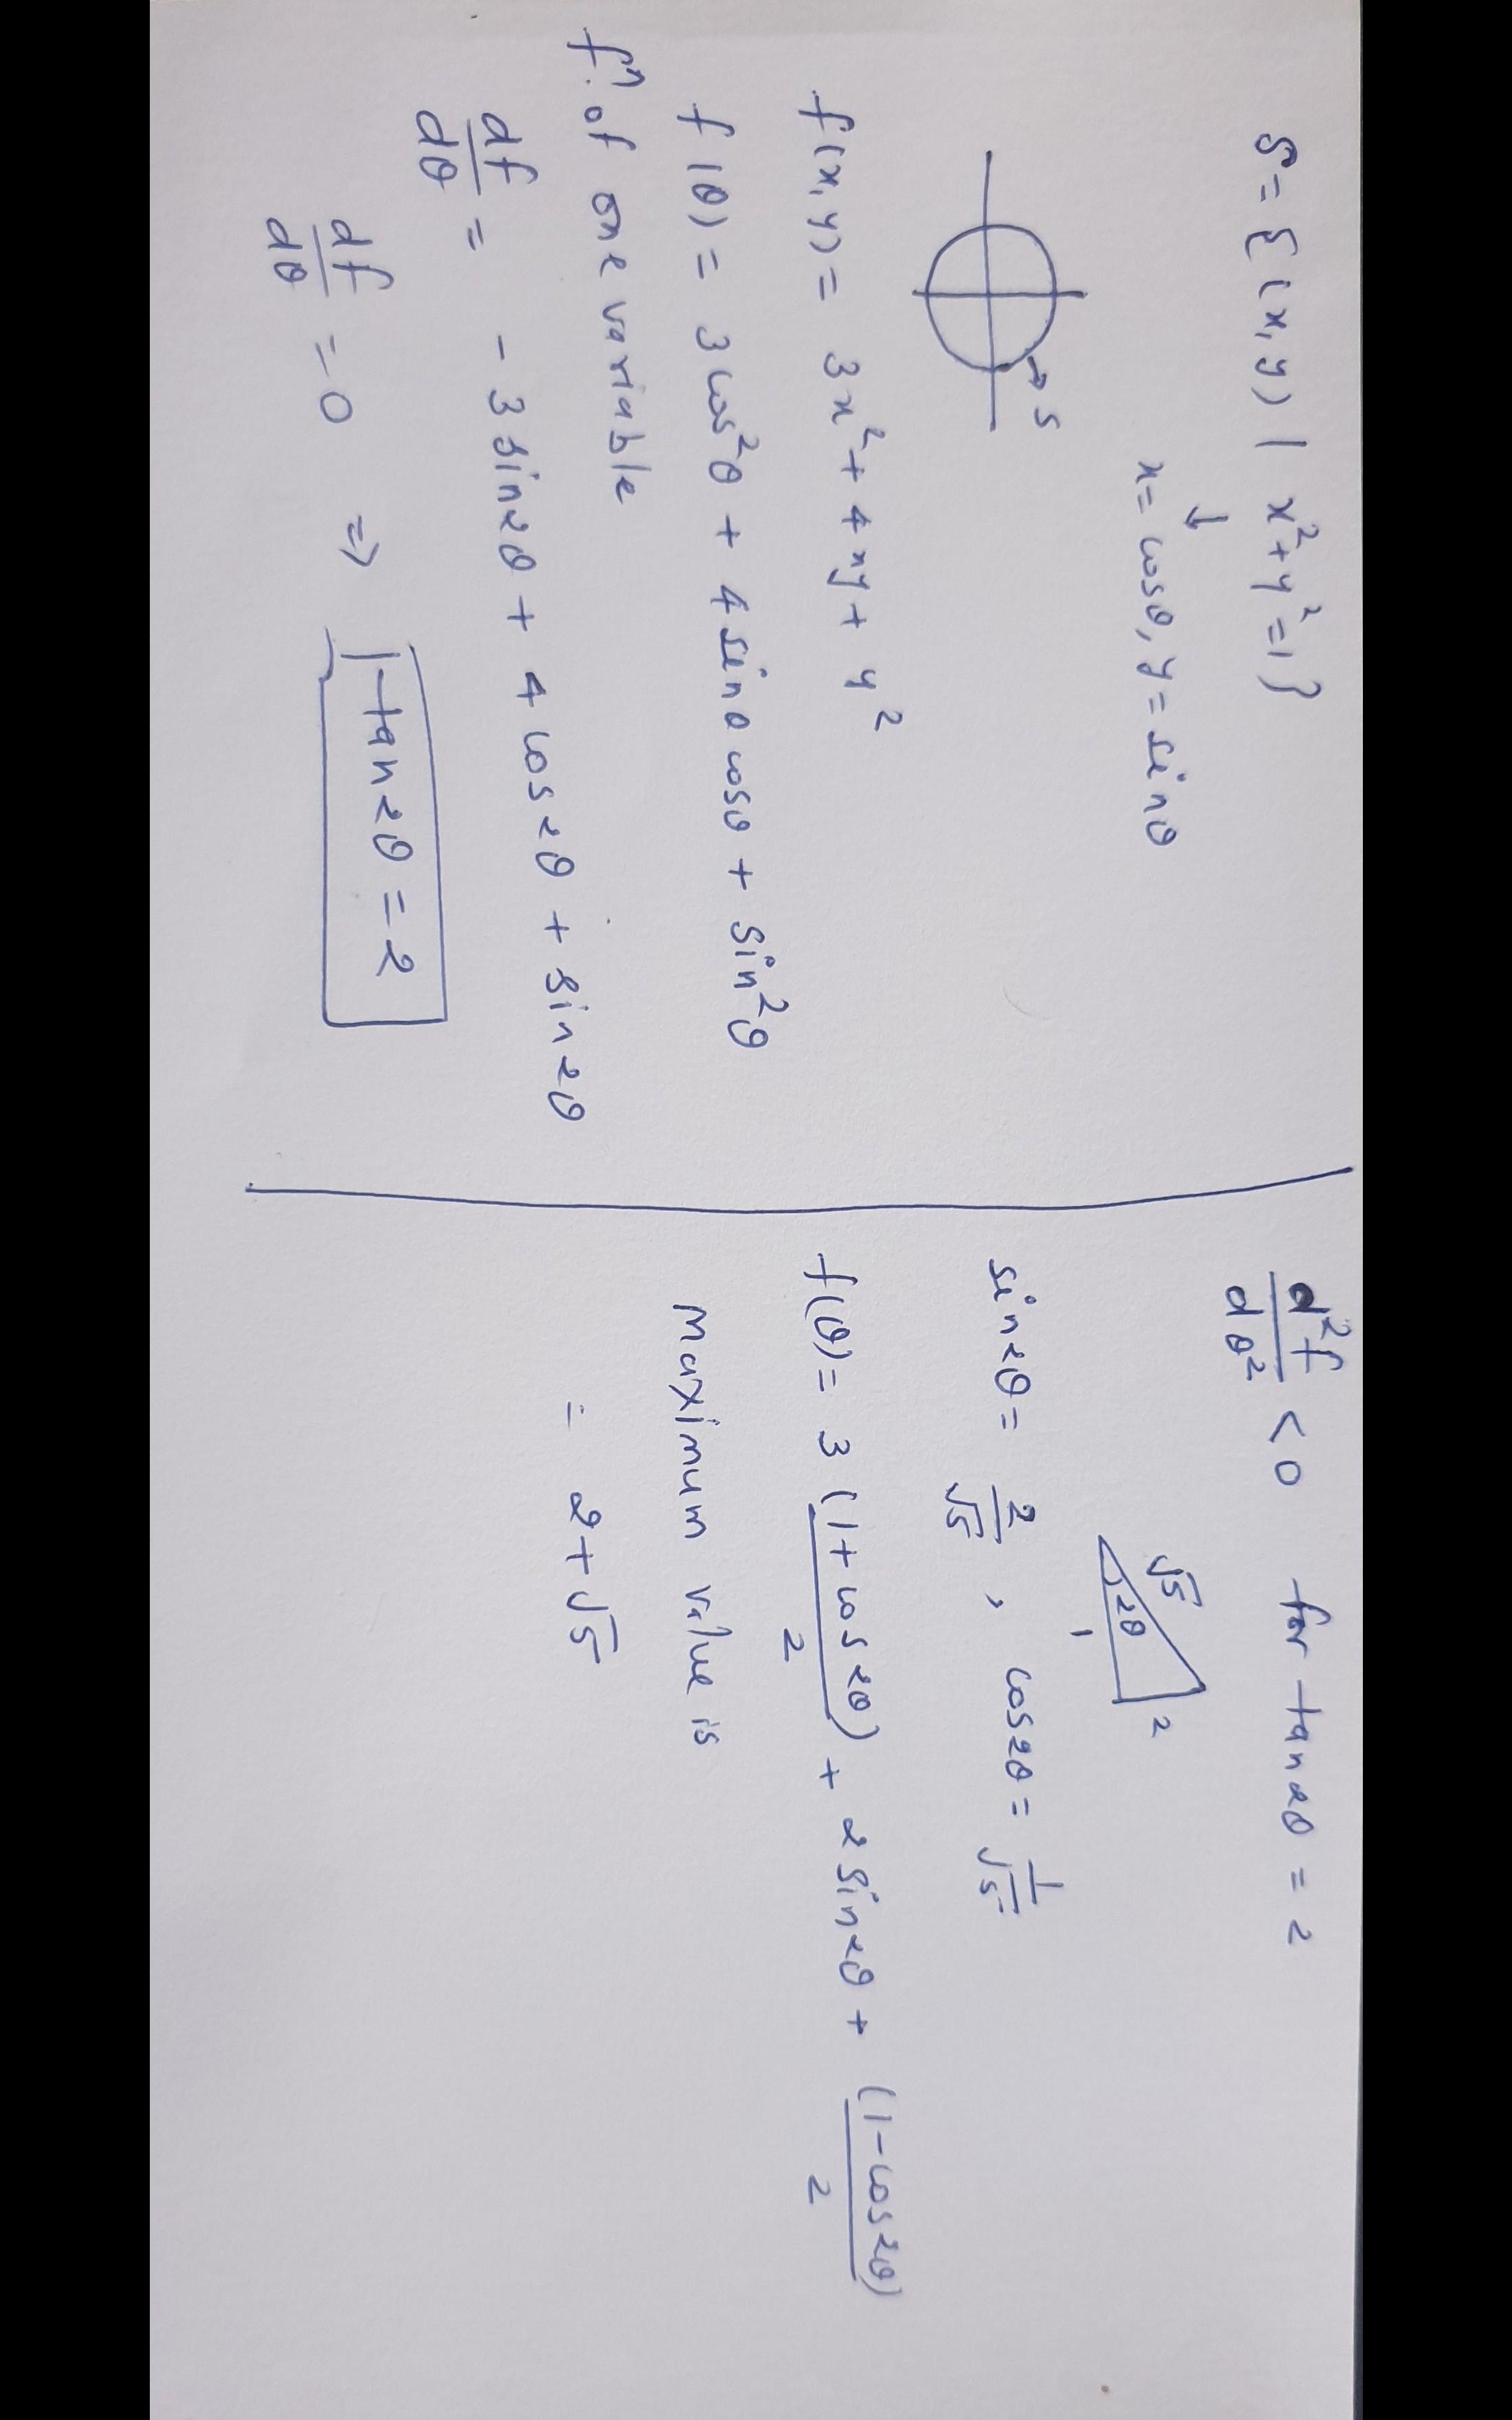 S = { (x, y) | x² + y² = 1 }
↓
x = cosθ, y = sinθ
→ S
f(x, y) = 3x² + 4xy + y²
f(θ) = 3cos²θ + 4 sinθ cosθ + sin²θ
fⁿ. of one variable
df/dθ = - 3 sin2θ + 4 cos2θ + sin2θ
df/dθ = 0 ⇒ tan2θ = 2
d²f/dθ² < 0 for tan2θ = 2
√5 2θ 2
1
sin2θ = 2/√5 , cos2θ = 1/√5
f(θ) = 3 (1 + cos2θ)/2 + 2 sin2θ + (1 - cos2θ)/2
Maximum value is
= 2 + √5